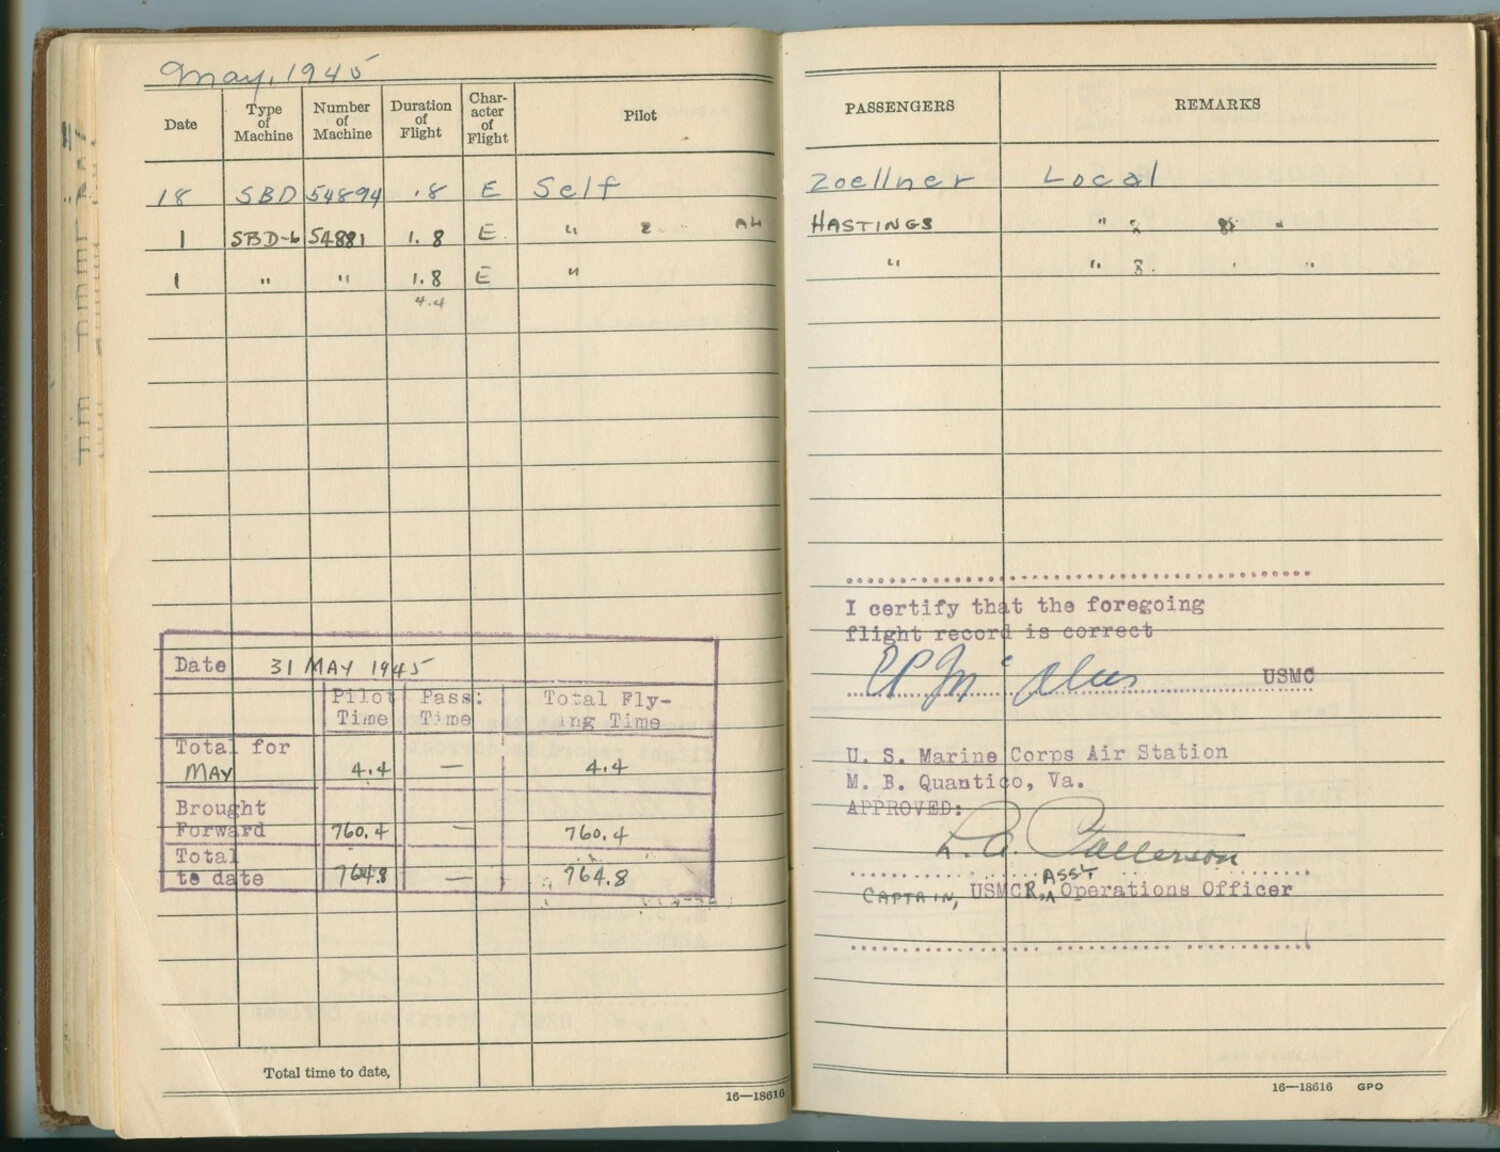 May, 1945
Date Type of Machine Number of Machine Duration of Flight Char- acter of Flight Pilot PASSENGERS REMARKS
18 SBD 54894 .8 E Self Zoellner Local
1 SBD-6 54881 1.8 E " HASTINGS "
1 " " 1.8 E " " "
4.4
I certify that the foregoing
flight record is correct
USMC
Date 31 MAY 1945
Pilot Time Pass: Time Total Fly- ing Time
Total for MAY 4.4 — 4.4
Brought Forward 760.4 — 760.4
Total to date 764.8 — 764.8
U. S. Marine Corps Air Station
M. B. Quantico, Va.
APPROVED:
L. A. Patterson
ASS'T
CAPTAIN, USMCR, Operations Officer
Total time to date,
16—18616
16—18616 GPO